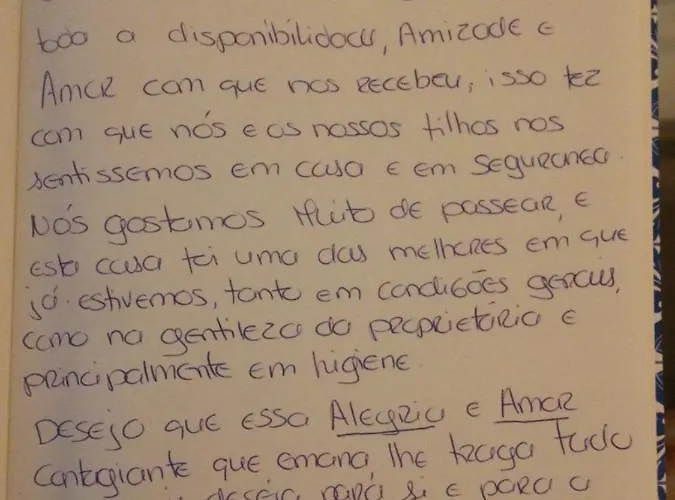 toda a disponibilidade, Amizade e
Amor com que nos recebeu, isso fez
com que nós e os nossos filhos nos
sentissemos em casa e em segurança.
Nós gostamos Muito de passear, e
esta casa foi uma das melhores em que
já estivemos, tanto em condições gerais,
como na gentileza da proprietária e
principalmente em higiene.
Desejo que essa Alegria e Amor
Contagiante que emana, lhe traga tudo
deseja para si e para a